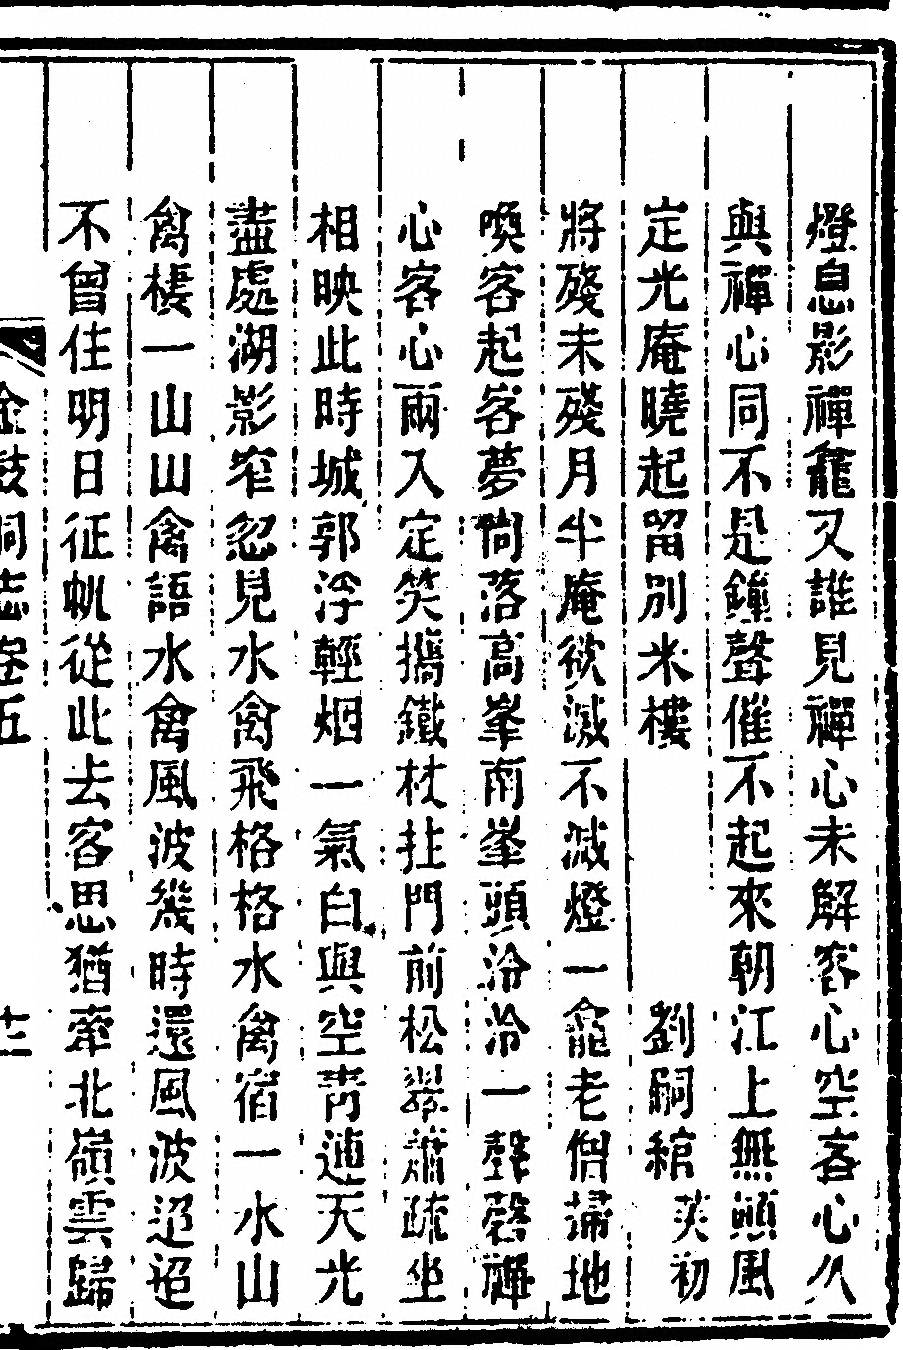 燈息影禪龕又誰見禪心未解客心空客心久
與禪心同不是鐘聲催不起來朝江上無顛風
定光庵曉起留別米樓　劉嗣綰芙初
將殘未殘月半庵欲滅不滅燈一龕老僧掃地
喚客起客夢尚落高峯南峯頭泠泠一聲磬禪
心客心兩入定笑攜鐵杖拄門前松翠蕭疏坐
相映此時城郭浮輕烟一氣白與空青連天光
盡處湖影窄忽見水禽飛格格水禽宿一水山
禽棲一山山禽語水禽風波幾時還風波迢迢
不曾住明日征帆從此去客思猶牽北嶺雲歸
金鼓洞志卷五　十二